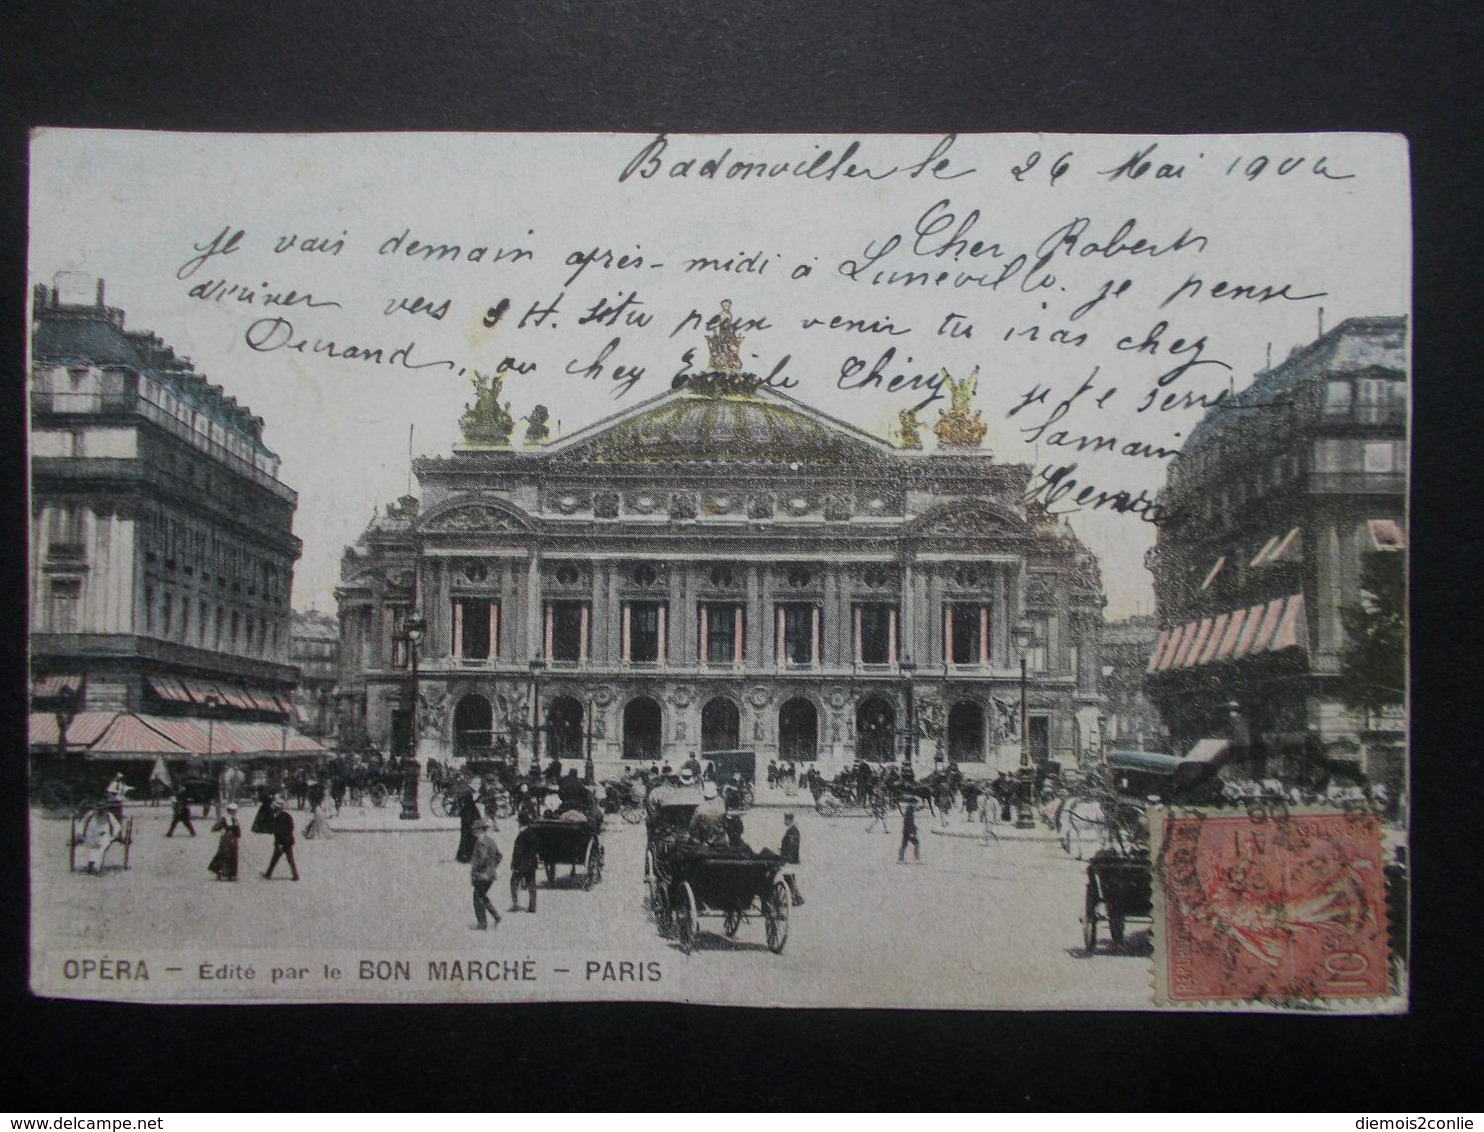 Badonviller le 26 Mai 190
Cher Robert
Je vais demain après-midi à Lunéville. je pense
arriver vers 9 H. si tu peux venir tu iras chez
Durand, ou chez Emile Théry je te serre
la main
Henri
OPÉRA — Édité par le BON MARCHÉ — PARIS
10
diemois2conlie